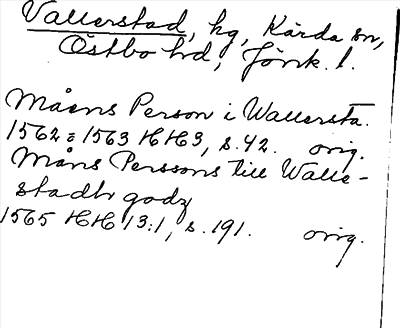 Vallerstad, hg, Kärda sn,
Östbo hd, Jönk. l.
Måens Person i Wallersta.
1562-1563 HH3, s. 42. orig.
Måns Perssons till Walle-
stadh godz
1565 HH 13:1, s. 191. orig.